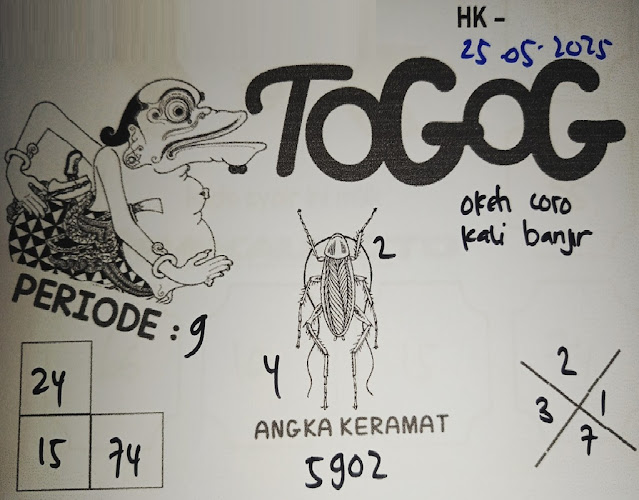 HK -
25 05.2025
TOGOG
okeh coro
kali banjir
PERIODE : 9
2
4
24
15 74
ANGKA KERAMAT
5902
2
3 1
7